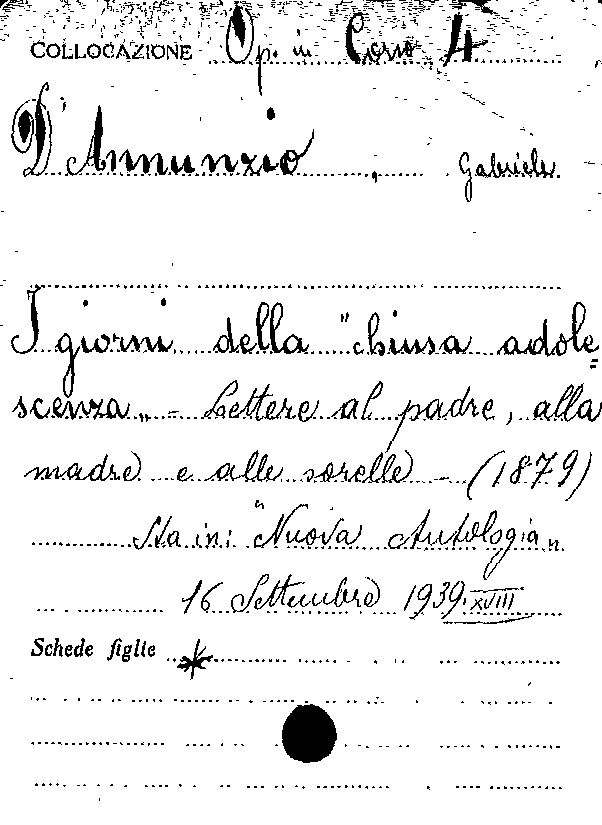 COLLOCAZIONE Op. in Corso 4
D'Annunzio, Gabriele
I giorni della "chiusa adole=
scenza„ - Lettere al padre, alla
madre e alle sorelle - (1879)
Sta in: "Nuova Antologia„
16 Settembre 1939. XVIII
Schede figlie *